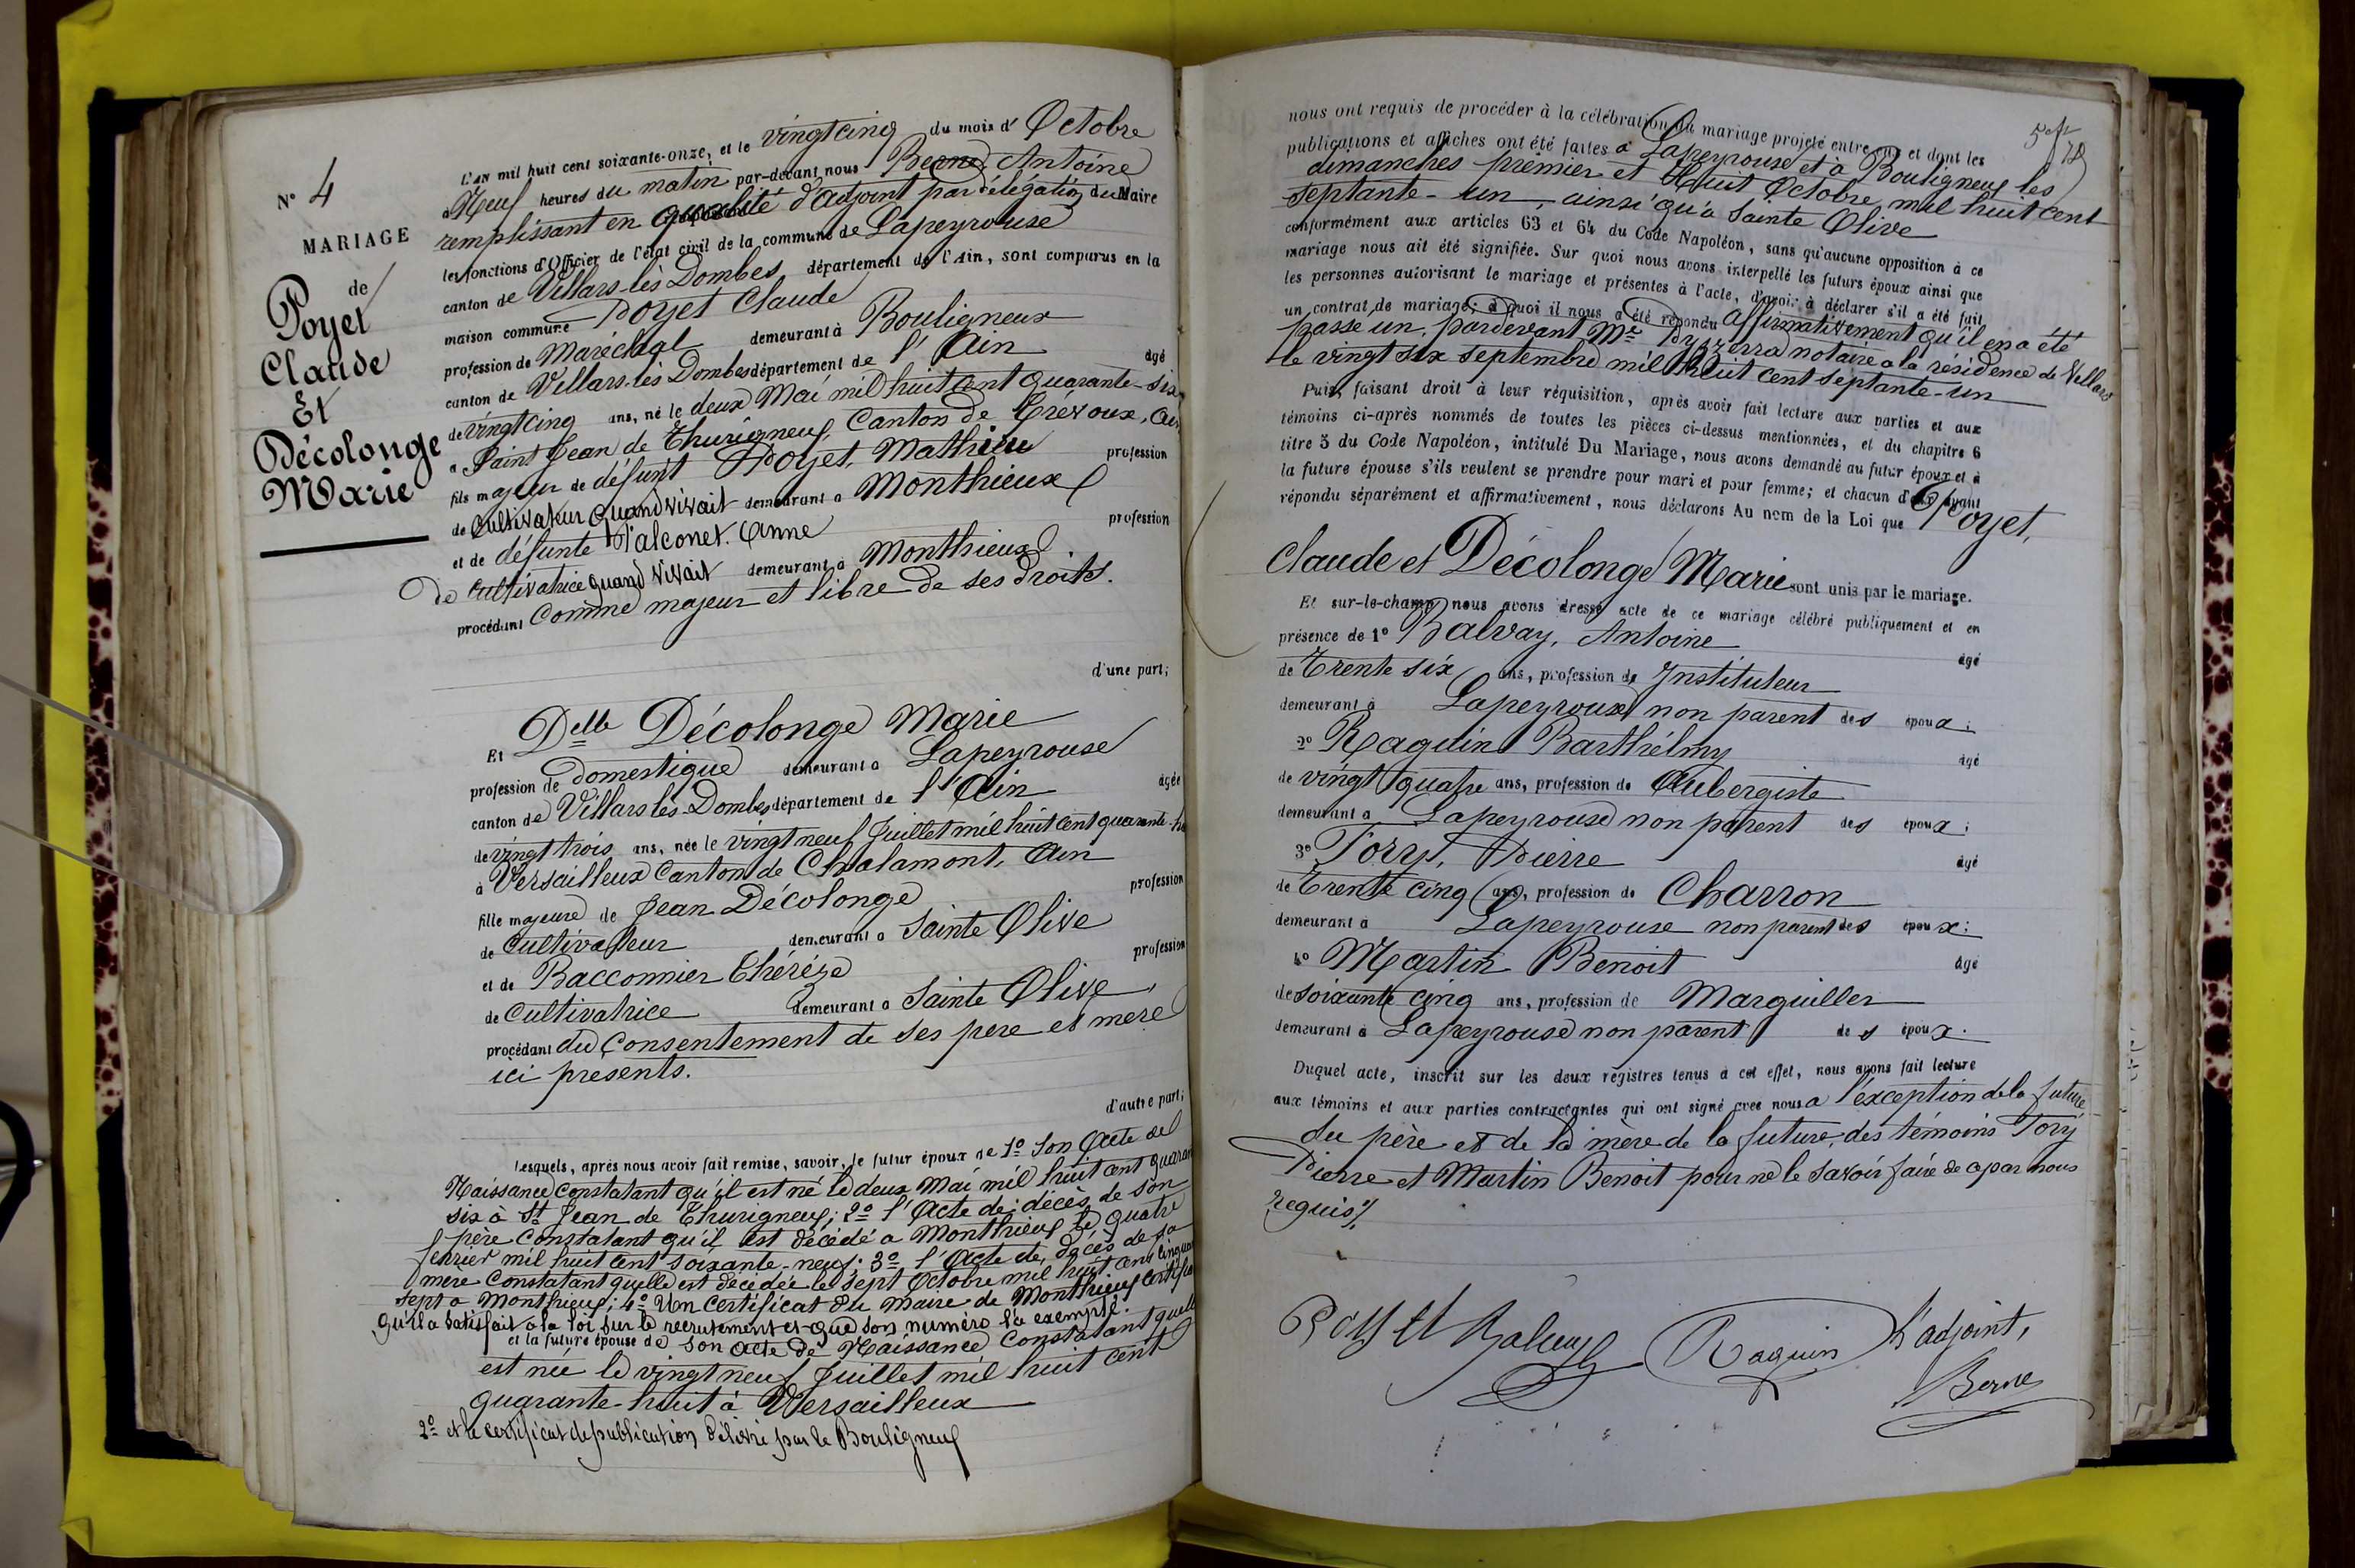 N° 4
MARIAGE
de
Poyet
Claude
Et
Décolonge
Marie
L'AN mil huit cent soixante-onze, et le vingt cinq du mois d'Octobre
à Neuf heures du matin par-devant nous Berne Antoine
remplissant en qualité d'adjoint par délégation du Maire
les fonctions d'Officier de l'état civil de la commune de Lapeyrouse
canton de Villars-lès Dombes, département de l'Ain, sont comparus en la
maison commune Poyet Claude
profession de Maréchal demeurant à Bouligneux
canton de Villars-lès Dombes département de l'Ain âgé
de vingt cinq ans, né le deux Mai mil huit cent quarante-six
à Saint Jean de Thurigneux, Canton de Trévoux, Ain
fils majeur de défunt Poyet, Mathieu profession
de Cultivateur quand vivait demeurant à Monthieux
et de défunte Falconet Anne profession
de Cultivatrice quand vivait demeurant à Monthieux
procédant Comme majeur et libre de ses droits.
d'une part;
Et Delle Décolonge Marie
profession de domestique demeurant à Lapeyrouse
canton de Villars lès-Dombes département de l'Ain âgée
de vingt trois ans, née le vingt neuf Juillet mil huit cent quarante-hu
à Versailleux Canton de Chalamont, Ain
fille majeure de Jean Décolonge profession
de Cultivateur demeurant à Sainte Olive
et de Bacconnier Thérèze profession
de Cultivatrice demeurant à Sainte Olive,
procédant du Consentement de ses pere et mere
ici presents.
d'autre part;
Lesquels, après nous avoir fait remise, savoir, le futur époux de 1° Son Acte de
Naissance constatant qu'il est né le deux Mai mil huit cent quaran
six à St Jean de Thurigneux; 2° l'Acte de décès de son
père Constatant qu'il est décédé à Monthieux le quatre
fevrier mil huit cent soixante-neuf; 3° l'Acte de décès de sa
mere Constatant quelle est décédée le sept Octobre mil huit cent cinquan
sept à Monthieux; 4° Un certificat du Maire de Monthieux certifia
qu'il a satisfait à la loi sur le recrutement et que son numéro l'a exempté.
et la future épouse de son acte de Naissance Constatant quelle
est née le vingt neuf Juillet mil huit cent
quarante-huit à Versailleux
2° et le certificat de publication délivré par le Bouligneux
nous ont requis de procéder à la célébration du mariage projeté entre eux et dont les
publications et affiches ont été faites à Lapeyrouse et à Bouligneux les
dimanches premier et huit Octobre mil huit cent
septante-un, ainsi qu'à Sainte Olive
conformément aux articles 63 et 64 du Code Napoléon, sans qu'aucune opposition à ce
mariage nous ait été signifiée. Sur quoi nous avons interpellé les futurs époux ainsi que
les personnes autorisant le mariage et présentes à l'acte, d'avoir à déclarer s'il a été fait
un contrat de mariage; à quoi il nous a été répondu affirmativement qu'il en a été
passé un pardevant Me notaire à la résidence de Villars
le vingt six septembre mil huit cent septante-un
Puis, faisant droit à leur réquisition, après avoir fait lecture aux parties et aux
témoins ci-après nommés de toutes les pièces ci-dessus mentionnées, et du chapitre 6
titre 5 du Code Napoléon, intitulé Du Mariage, nous avons demandé au futur époux et à
la future épouse s'ils veulent se prendre pour mari et pour femme; et chacun d'eux ayant
répondu séparément et affirmativement, nous déclarons Au nom de la Loi que Poyet,
Claude et Décolonge Marie sont unis par le mariage.
Et sur-le-champ nous avons dressé acte de ce mariage célébré publiquement et en
présence de 1° Balvay, Antoine âgé
de Trente six ans, profession de Instituteur
demeurant à Lapeyrouse non parent des époux;
2° Raquin Barthélmy âgé
de vingt quatre ans, profession de Aubergiste
demeurant à Lapeyrouse non parent des époux;
3° Tory, Pierre âgé
de Trente cinq ans, profession de Charron
demeurant à Lapeyrouse non parent des époux;
4° Martin Benoit âgé
de soixante cinq ans, profession de Marguiller
demeurant à Lapeyrouse non parent des époux.
Duquel acte, inscrit sur les deux registres tenus à cet effet, nous avons fait lecture
aux témoins et aux parties contractantes qui ont signé avec nous à l'exception de la future
du père et de la mère de la future, des témoins Tory
Pierre et Martin Benoit pour ne le savoir faire de ce par nous
requis
Poyet Balvay Raquin L'adjoint,
Berne